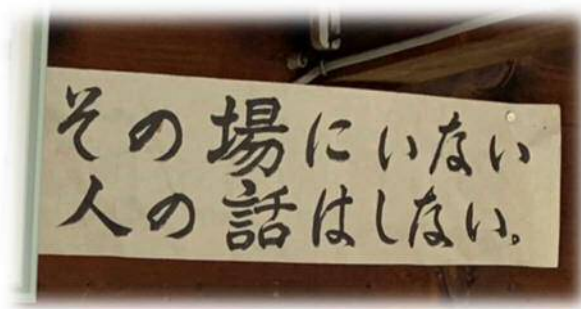 その場にいない
人の話はしない。